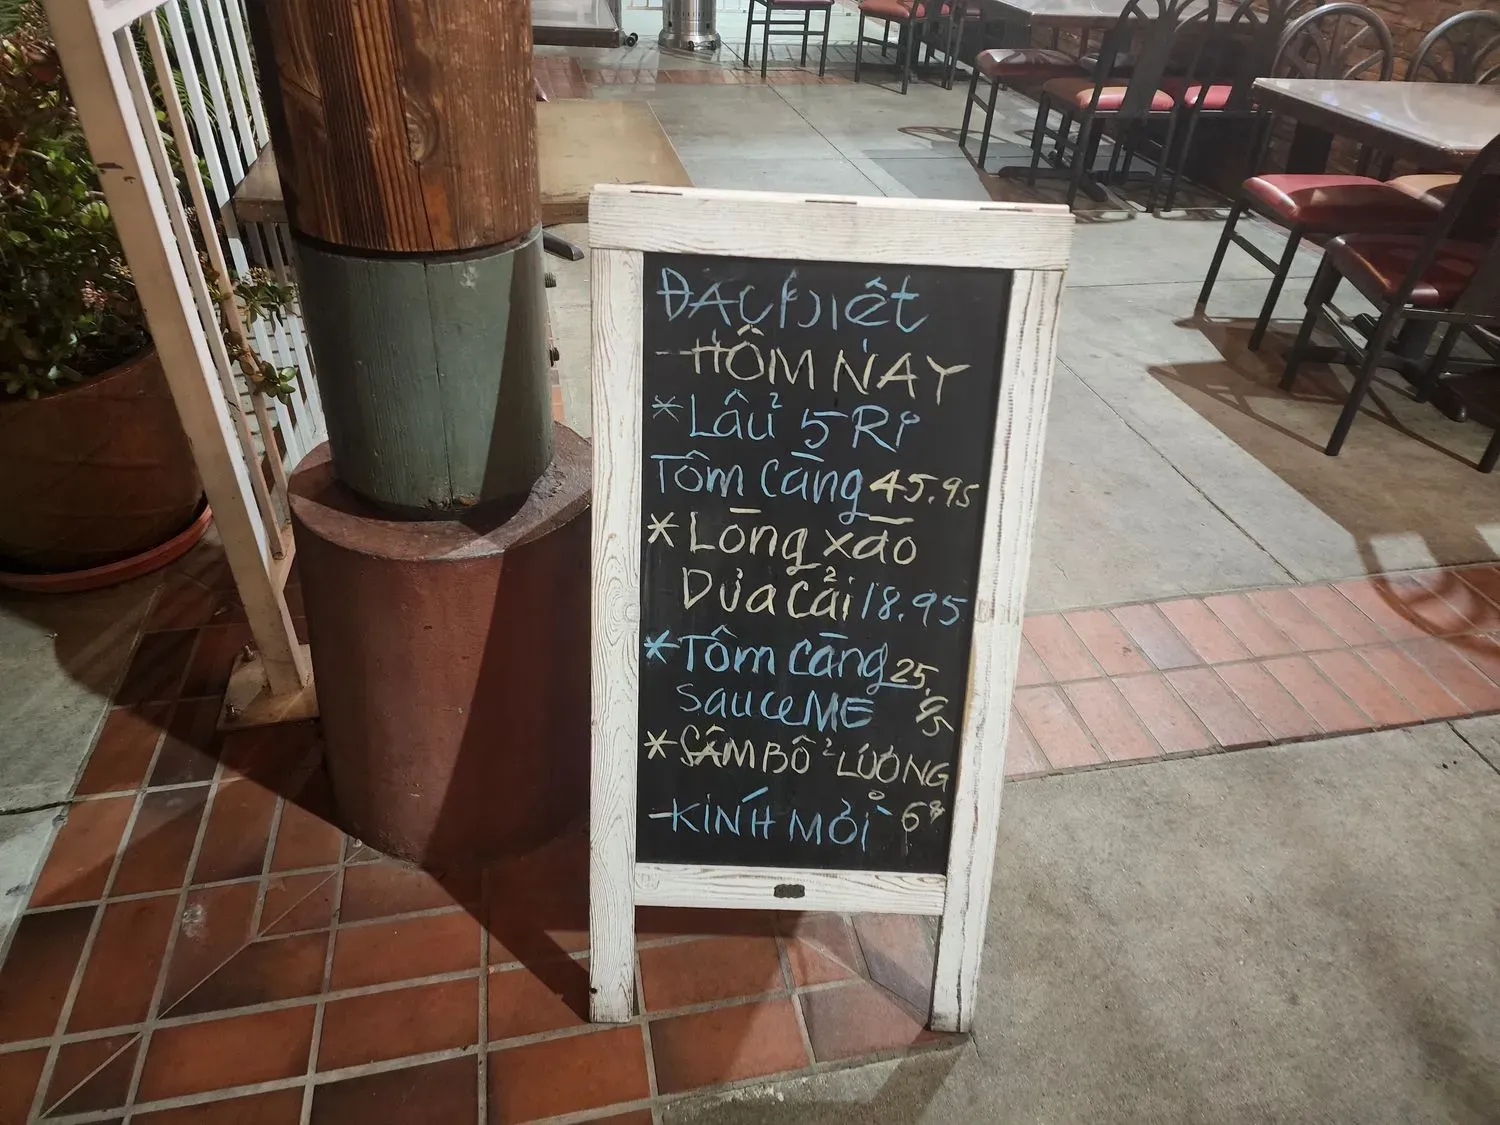 ĐẶC BIỆt
-HÔM NAY
*Lẩu 5 Ri
Tôm Càng 45.95
*Lòng xào
Dưa Cải 18.95
*Tôm Càng 25.
sauce ME 95
*SÂM BỔ LƯỢNG
-KíNH MỜi 6